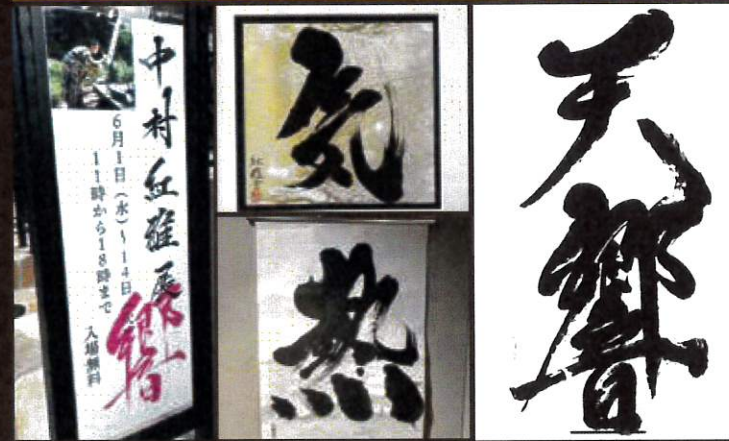 中村丘雅展
6月1日（水）〜14日
11時から18時まで
入場無料
響
気
熱
天響